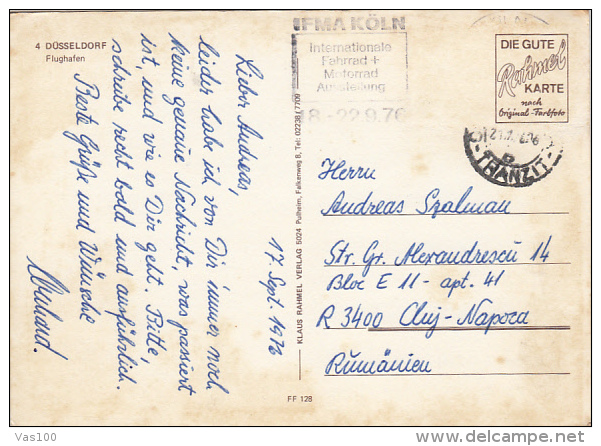 4 DÜSSELDORF
Flughafen
17 Sept. 1976
Lieber Andreas,
leider hab ich von Dir immer noch
keine genaue Nachricht, was passiert
ist, und wie es Dir geht. Bitte,
schreibe recht bald und ausführlich.
Beste Grüße und Wünsche
KLAUS RAHMEL VERLAG 5024 Pulheim, Falkenweg 8, Tel: 02238 / 7709
IFMA KÖLN
Internationale
Fahrrad +
Motorrad
Ausstellung
18.-22.9.76
DIE GUTE
Rahmel
KARTE
nach
Original-Farbfoto
TRANZIT
Herrn
Andreas Szalman
Str. Gr. Alexandrescu 14
Bloc E 11 - apt. 41
R 3400 Cluj-Napoca
Rumänien
FF 128
Vas100
www.delcampe.net